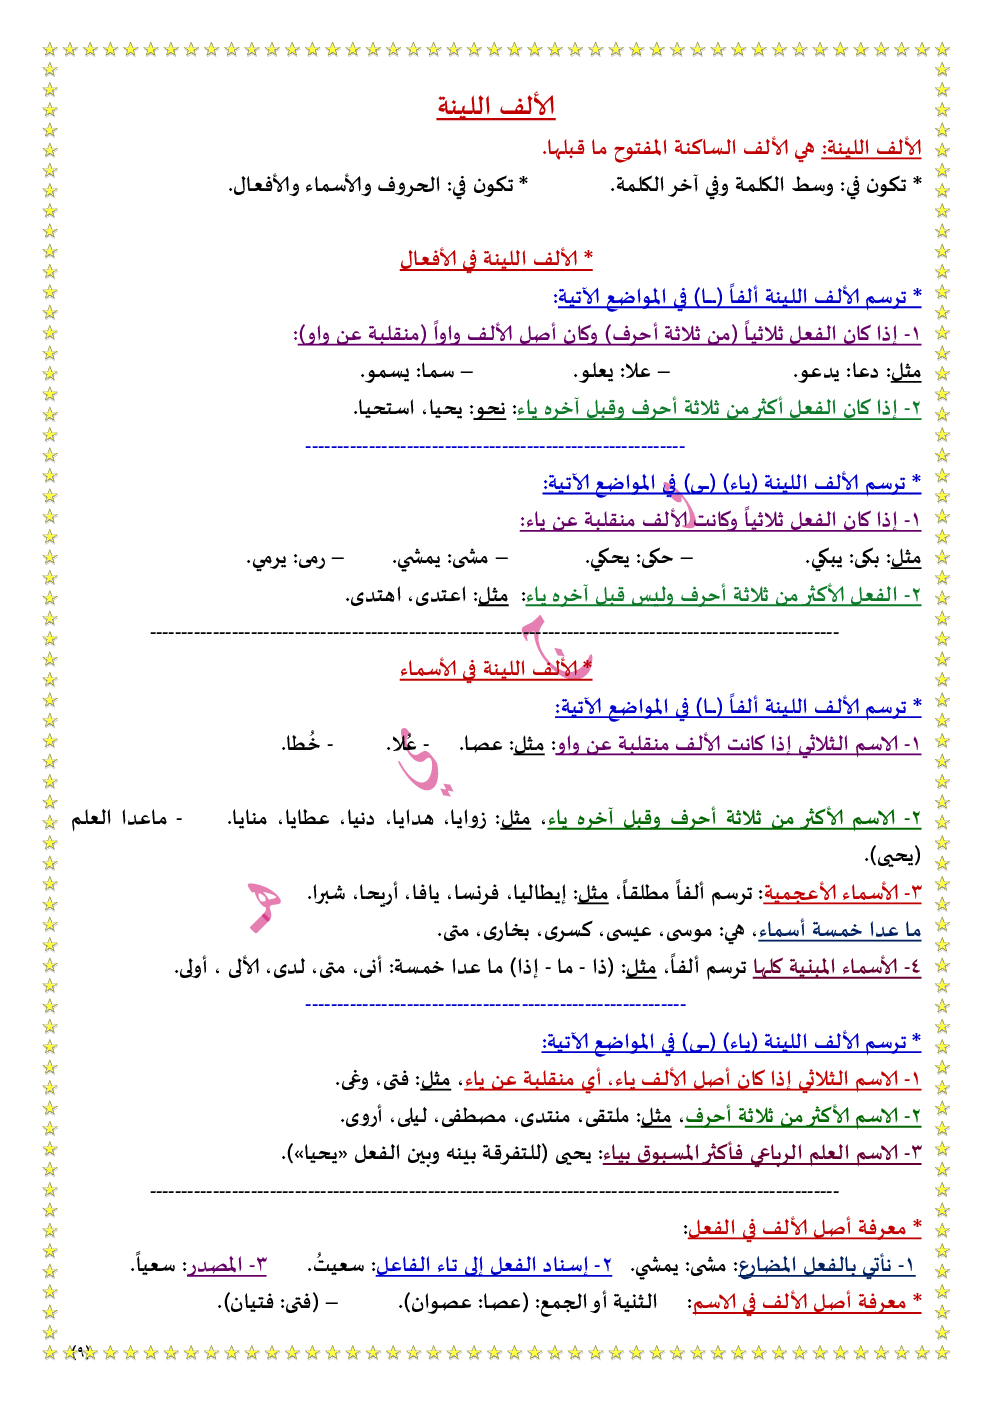 الألف اللينة
الألف اللينة: هي الألف الساكنة المفتوح ما قبلها.
* تكون في: وسط الكلمة وفي آخر الكلمة. * تكون في: الحروف والأسماء والأفعال.
* الألف اللينة في الأفعال
* ترسم الألف اللينة ألفاً (ـا) في المواضع الآتية:
١- إذا كان الفعل ثلاثياً (من ثلاثة أحرف) وكان أصل الألف واواً (منقلبة عن واو):
مثل: دعا: يدعو. – علا: يعلو. – سما: يسمو.
٢- إذا كان الفعل أكثر من ثلاثة أحرف وقبل آخره ياء: نحو: يحيا، استحيا.
* ترسم الألف اللينة (ياء) (ـى) في المواضع الآتية:
١- إذا كان الفعل ثلاثياً وكانت الألف منقلبة عن ياء:
مثل: بكى: يبكي. – حكى: يحكي. – مشى: يمشي. – رمى: يرمي.
٢- الفعل الأكثر من ثلاثة أحرف وليس قبل آخره ياء: مثل: اعتدى، اهتدى.
* الألف اللينة في الأسماء
* ترسم الألف اللينة ألفاً (ـا) في المواضع الآتية:
١- الاسم الثلاثي إذا كانت الألف منقلبة عن واو: مثل: عصا. - عُلا. - خُطا.
٢- الاسم الأكثر من ثلاثة أحرف وقبل آخره ياء، مثل: زوايا، هدايا، دنيا، عطايا، منايا. - ماعدا العلم
(يحيى).
٣- الأسماء الأعجمية: ترسم ألفاً مطلقاً، مثل: إيطاليا، فرنسا، يافا، أريحا، شبرا.
ما عدا خمسة أسماء، هي: موسى، عيسى، كسرى، بخارى، متى.
٤- الأسماء المبنية كلها ترسم ألفاً، مثل: (ذا - ما - إذا) ما عدا خمسة: أنى، متى، لدى، الألى ، أولى.
* ترسم الألف اللينة (ياء) (ـى) في المواضع الآتية:
١- الاسم الثلاثي إذا كان أصل الألف ياء، أي منقلبة عن ياء، مثل: فتى، وغى.
٢- الاسم الأكثر من ثلاثة أحرف، مثل: ملتقى، منتدى، مصطفى، ليلى، أروى.
٣- الاسم العلم الرباعي فأكثر المسبوق بياء: يحيى (للتفرقة بينه وبين الفعل «يحيا»).
* معرفة أصل الألف في الفعل:
١- نأتي بالفعل المضارع: مشى: يمشي. ٢- إسناد الفعل إلى تاء الفاعل: سعيتُ. ٣- المصدر: سعياً.
* معرفة أصل الألف في الاسم: الثنية أو الجمع: (عصا: عصوان). – (فتى: فتيان).
(٩)